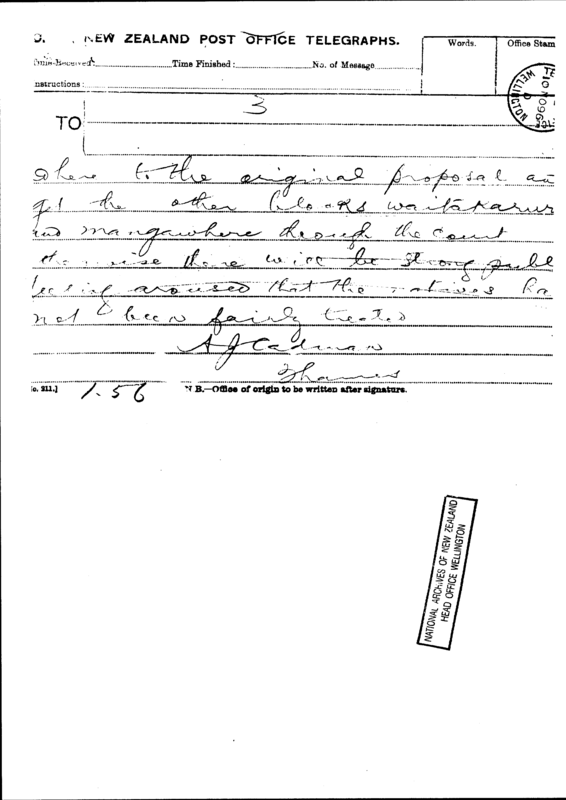 NEW ZEALAND POST OFFICE TELEGRAPHS.
Words.
Office Stam
Time-Received: Time Finished: No. of Message
nstructions:
WELLINGTON
3
TO
here to the original proposal an
get the other blocks waitakarur
and mangawhere through the court
otherwise there will be strong publ
feeling aroused that the natives ha
not been fairly treated
A J Cadman
Thames
1.56
o. 211.] N B.—Office of origin to be written after signature.
NATIONAL ARCHIVES OF NEW ZEALAND
HEAD OFFICE WELLINGTON